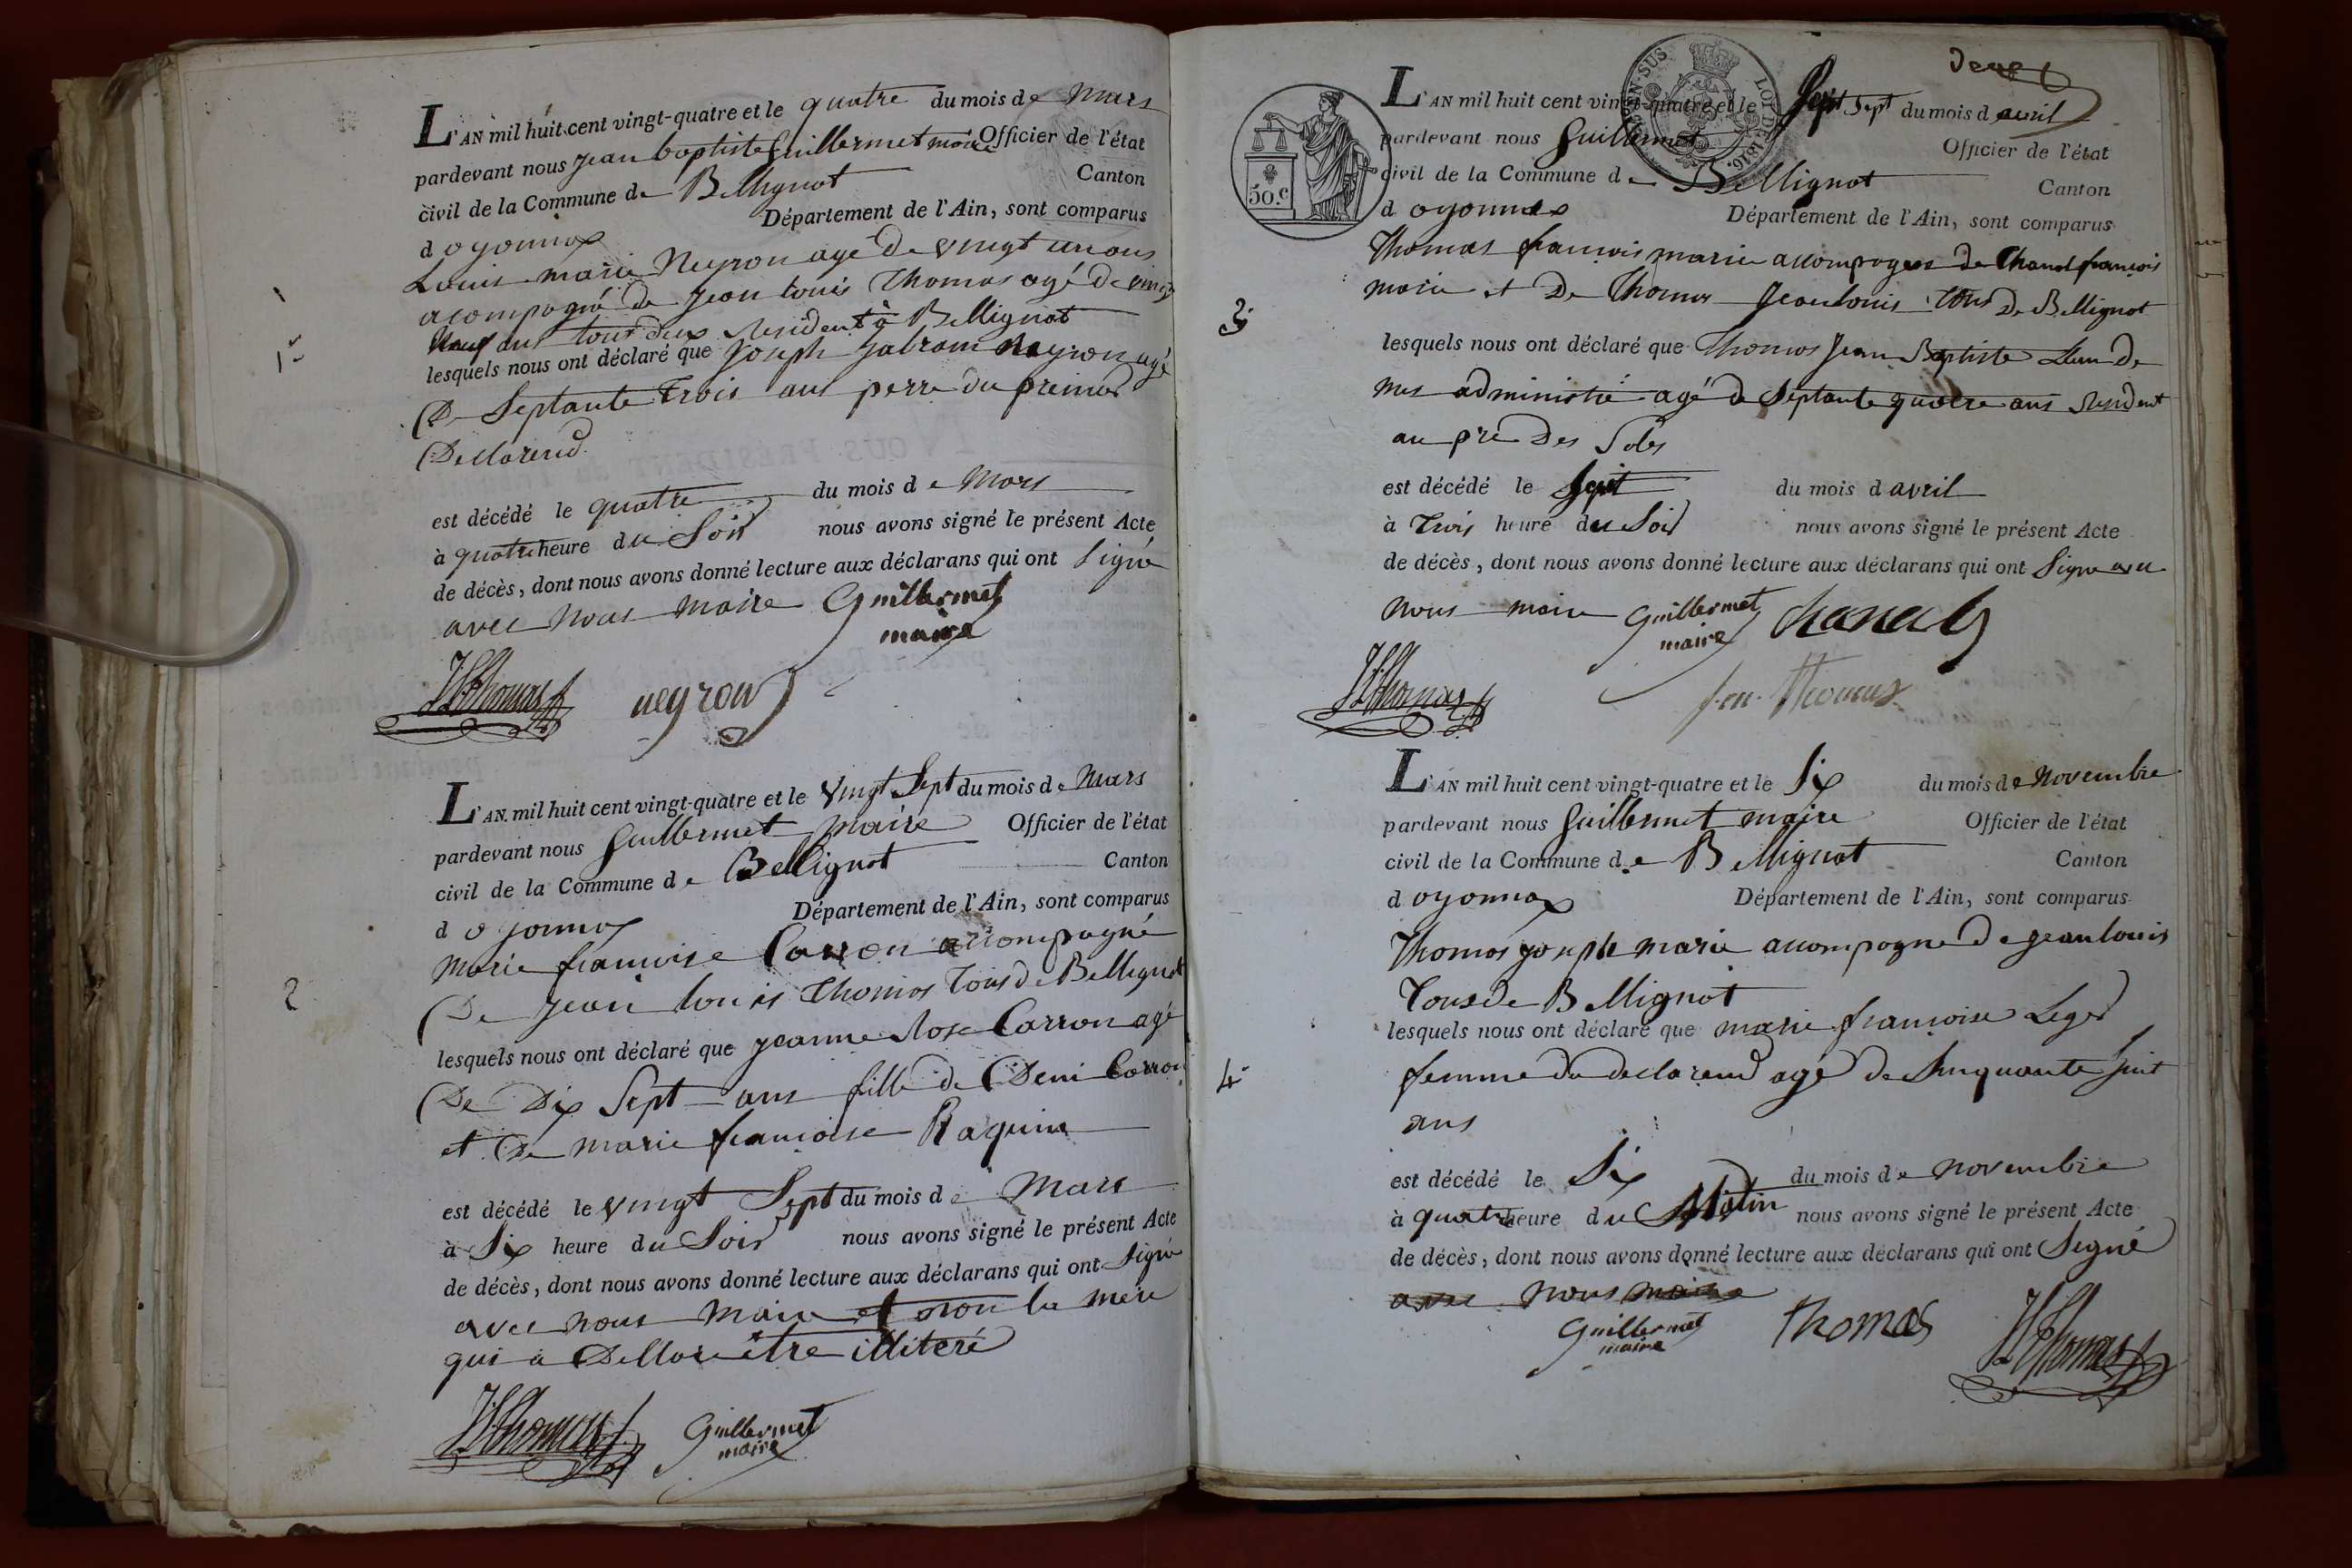 L'AN mil huit cent vingt-quatre et le quatre du mois de Mars
pardevant nous jean baptiste Guillermet maire Officier de l'état
civil de la Commune de Bellignat Canton
d oyonnax Département de l'Ain, sont comparus
Louis marie Neyron agé de vingt un ans
acompagné de jean louis Thomas agé de vingt
neuf ans tous deux Resident à Bellignat
1
lesquels nous ont déclaré que joseph Neyron agé
De Septante Trois ans perre du premier
Declarend
est décédé le quatre du mois de Mars
à quatre heure du Soir nous avons signé le présent Acte
de décès, dont nous avons donné lecture aux déclarans qui ont Signé
avec nous maire Guillermet
maire
JLThomas neyron
L'AN mil huit cent vingt-quatre et le vingt Sept du mois de Mars
pardevant nous Guillermet maire Officier de l'état
civil de la Commune de Bellignat Canton
d oyonnax Département de l'Ain, sont comparus
Marie françoise Carron accompagné
De jean louis Thomas Tous de Bellignat
2
lesquels nous ont déclaré que jeanne Rose Carron agé
De Dix Sept ans fille de Deni Carron
et De marie françoise Raquin
est décédé le vingt Sept du mois de Mars
à Six heure du Soir nous avons signé le présent Acte
de décès, dont nous avons donné lecture aux déclarans qui ont Signé
avec nous Maire et non la mère
qui a Dellare être illiteré
JLThomas Guillermet
maire
LOI DE 1816.
50.c
L'AN mil huit cent vingt-quatre et le Sept Sept du mois d avril
pardevant nous Guillermet Officier de l'état
civil de la Commune de Bellignat Canton
d oyonnax Département de l'Ain, sont comparus
Thomas françois marie accompagné de Chanal françois
marie et De Thomas Jean louis tous De Bellignat
3
lesquels nous ont déclaré que Thomas Jean Baptiste L'un De
mes administré agé de Septante quatre ans Resident
au pré Des
est décédé le Sept du mois d avril
à Trois heure du Soir nous avons signé le présent Acte
de décès, dont nous avons donné lecture aux déclarans qui ont Signé avec
nous maire Guillermet Chanal
maire
JLThomas f. m. Thomas
L'AN mil huit cent vingt-quatre et le Six du mois de Novembre
pardevant nous Guillermet maire Officier de l'état
civil de la Commune de Bellignat Canton
d oyonnax Département de l'Ain, sont comparus
Thomas joseph marie accompagné de jean louis
Tous de Bellignat
lesquels nous ont déclaré que marie françoise Leger
4
femme du declarend agé de Sinquante huit
ans
est décédé le Six du mois de Novembre
à quatre heure du Matin nous avons signé le présent Acte
de décès, dont nous avons donné lecture aux déclarans qui ont Segné
avec nous maire
Guillermet Thomas JLThomas
maire